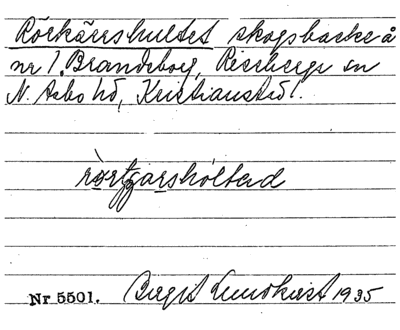 Rörkärrshultet skogsbacke å
nr 1. Brandeborg, Riseberga sn
N. Åsbo hd, Kristianstd l.
rörtgarshòltəd
Nr 5501. Birgit Lundkvist 1935